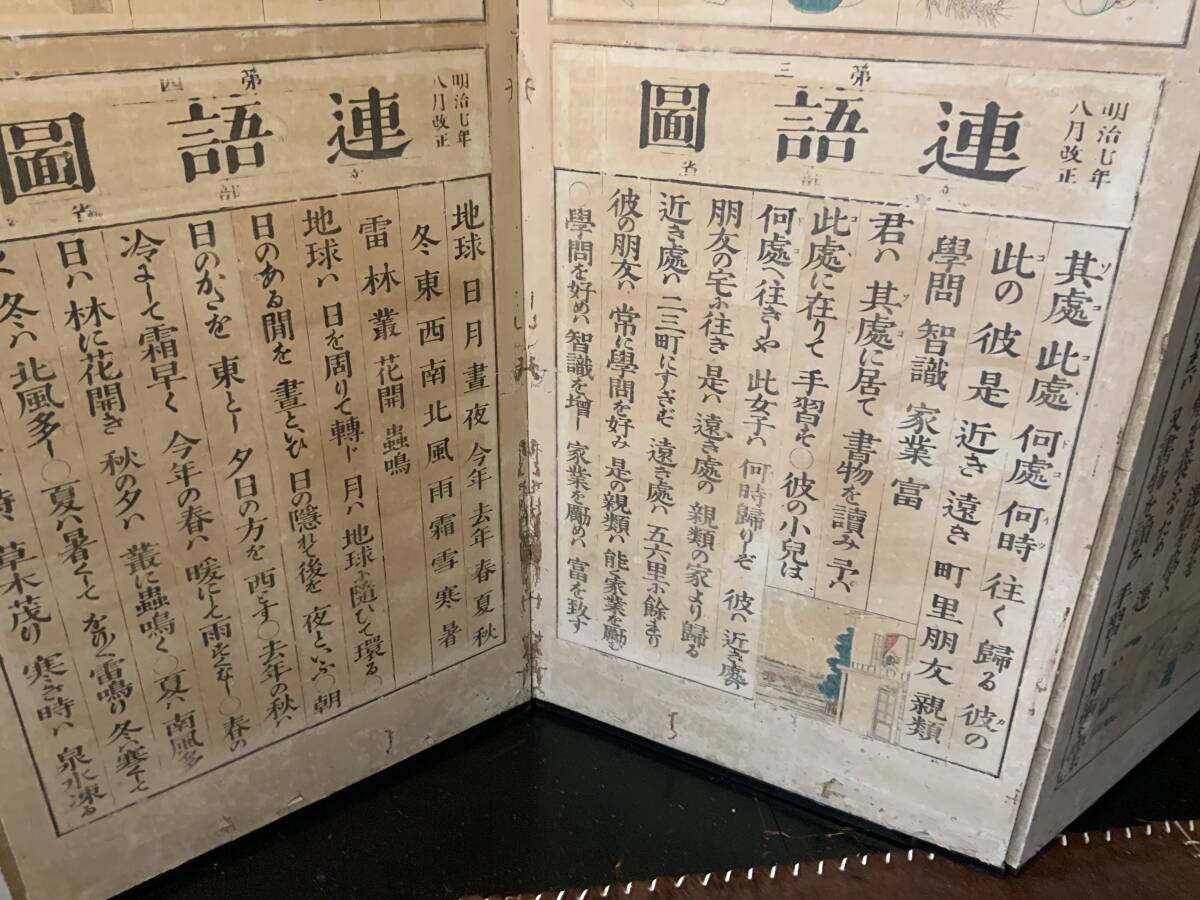 明治七年
八月改正
第三
連語圖
文部省
其處 此處 何處 何時 往く 歸る 彼の
此の 彼 是 近き 遠き 町 里 朋友 親類
學問 智識 家業 富
君ハ 其處に居て 書物を讀み 予ハ
此處に在りて 手習せり○彼の小兒は
何處へ往きしや 此女子ハ 何時歸りしぞ 彼ハ 近き處の
朋友の宅に往き 是ハ 遠き處の 親類の家より歸る
近き處ハ 二三町にすぎず 遠き處ハ 五六里に餘まり
彼の朋友ハ 常に學問を好み 是の親類ハ 能く家業を勵む
○學問を好めハ 智識を增し 家業を勵めハ 富を致す
明治七年
八月改正
第四
連語圖
文部省
地球 日 月 晝 夜 今年 去年 春 夏 秋
冬 東 西 南 北 風 雨 霜 雪 寒 暑
雷 林 叢 花開 蟲鳴
地球ハ 日を周りて轉じ 月ハ 地球に隨いて環る
日のある閒を 晝といひ 日の隱れて後を 夜といふ○朝
日のかたを 東とし 夕日の方を 西とす○去年の秋ハ
冷にして霜早く 今年の春ハ 暖にして雨すくなし○春の
日ハ 林に花開き 秋の夕ハ 叢に蟲鳴く○夏ハ 南風多
く 冬ハ 北風多し○夏ハ暑くして をりをり雷鳴り 冬ハ寒くして
時ハ 草木茂り 寒き時ハ 泉水凍る